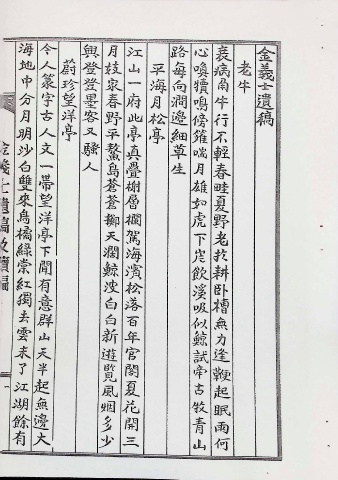 金義士遺稿
老牛
衰病吊牛行不輕春畦夏野老於耕卧槽無力逢鞭起眠雨何
心喚犢鳴傍簷喘月雄如虎下岸飲溪吸似鯨試帝古牧青山
路每向澗邊細草生
平海月松亭
江山一府此亭眞疊榭層欄駕海濱松落百年官閣夏花開三
月妓家春野平鰲島蒼蒼掷天濶鯨波白白新遊覽風烟多少
興登登墨客又騷人
蔚珍望洋亭
令人篆字古人文一帶望洋亭下聞有意群山天半起無邊大
海地中分月明沙白雙來鳥橘綠棠紅獨去雲來了江湖餘有
金義士遺稿
編
一